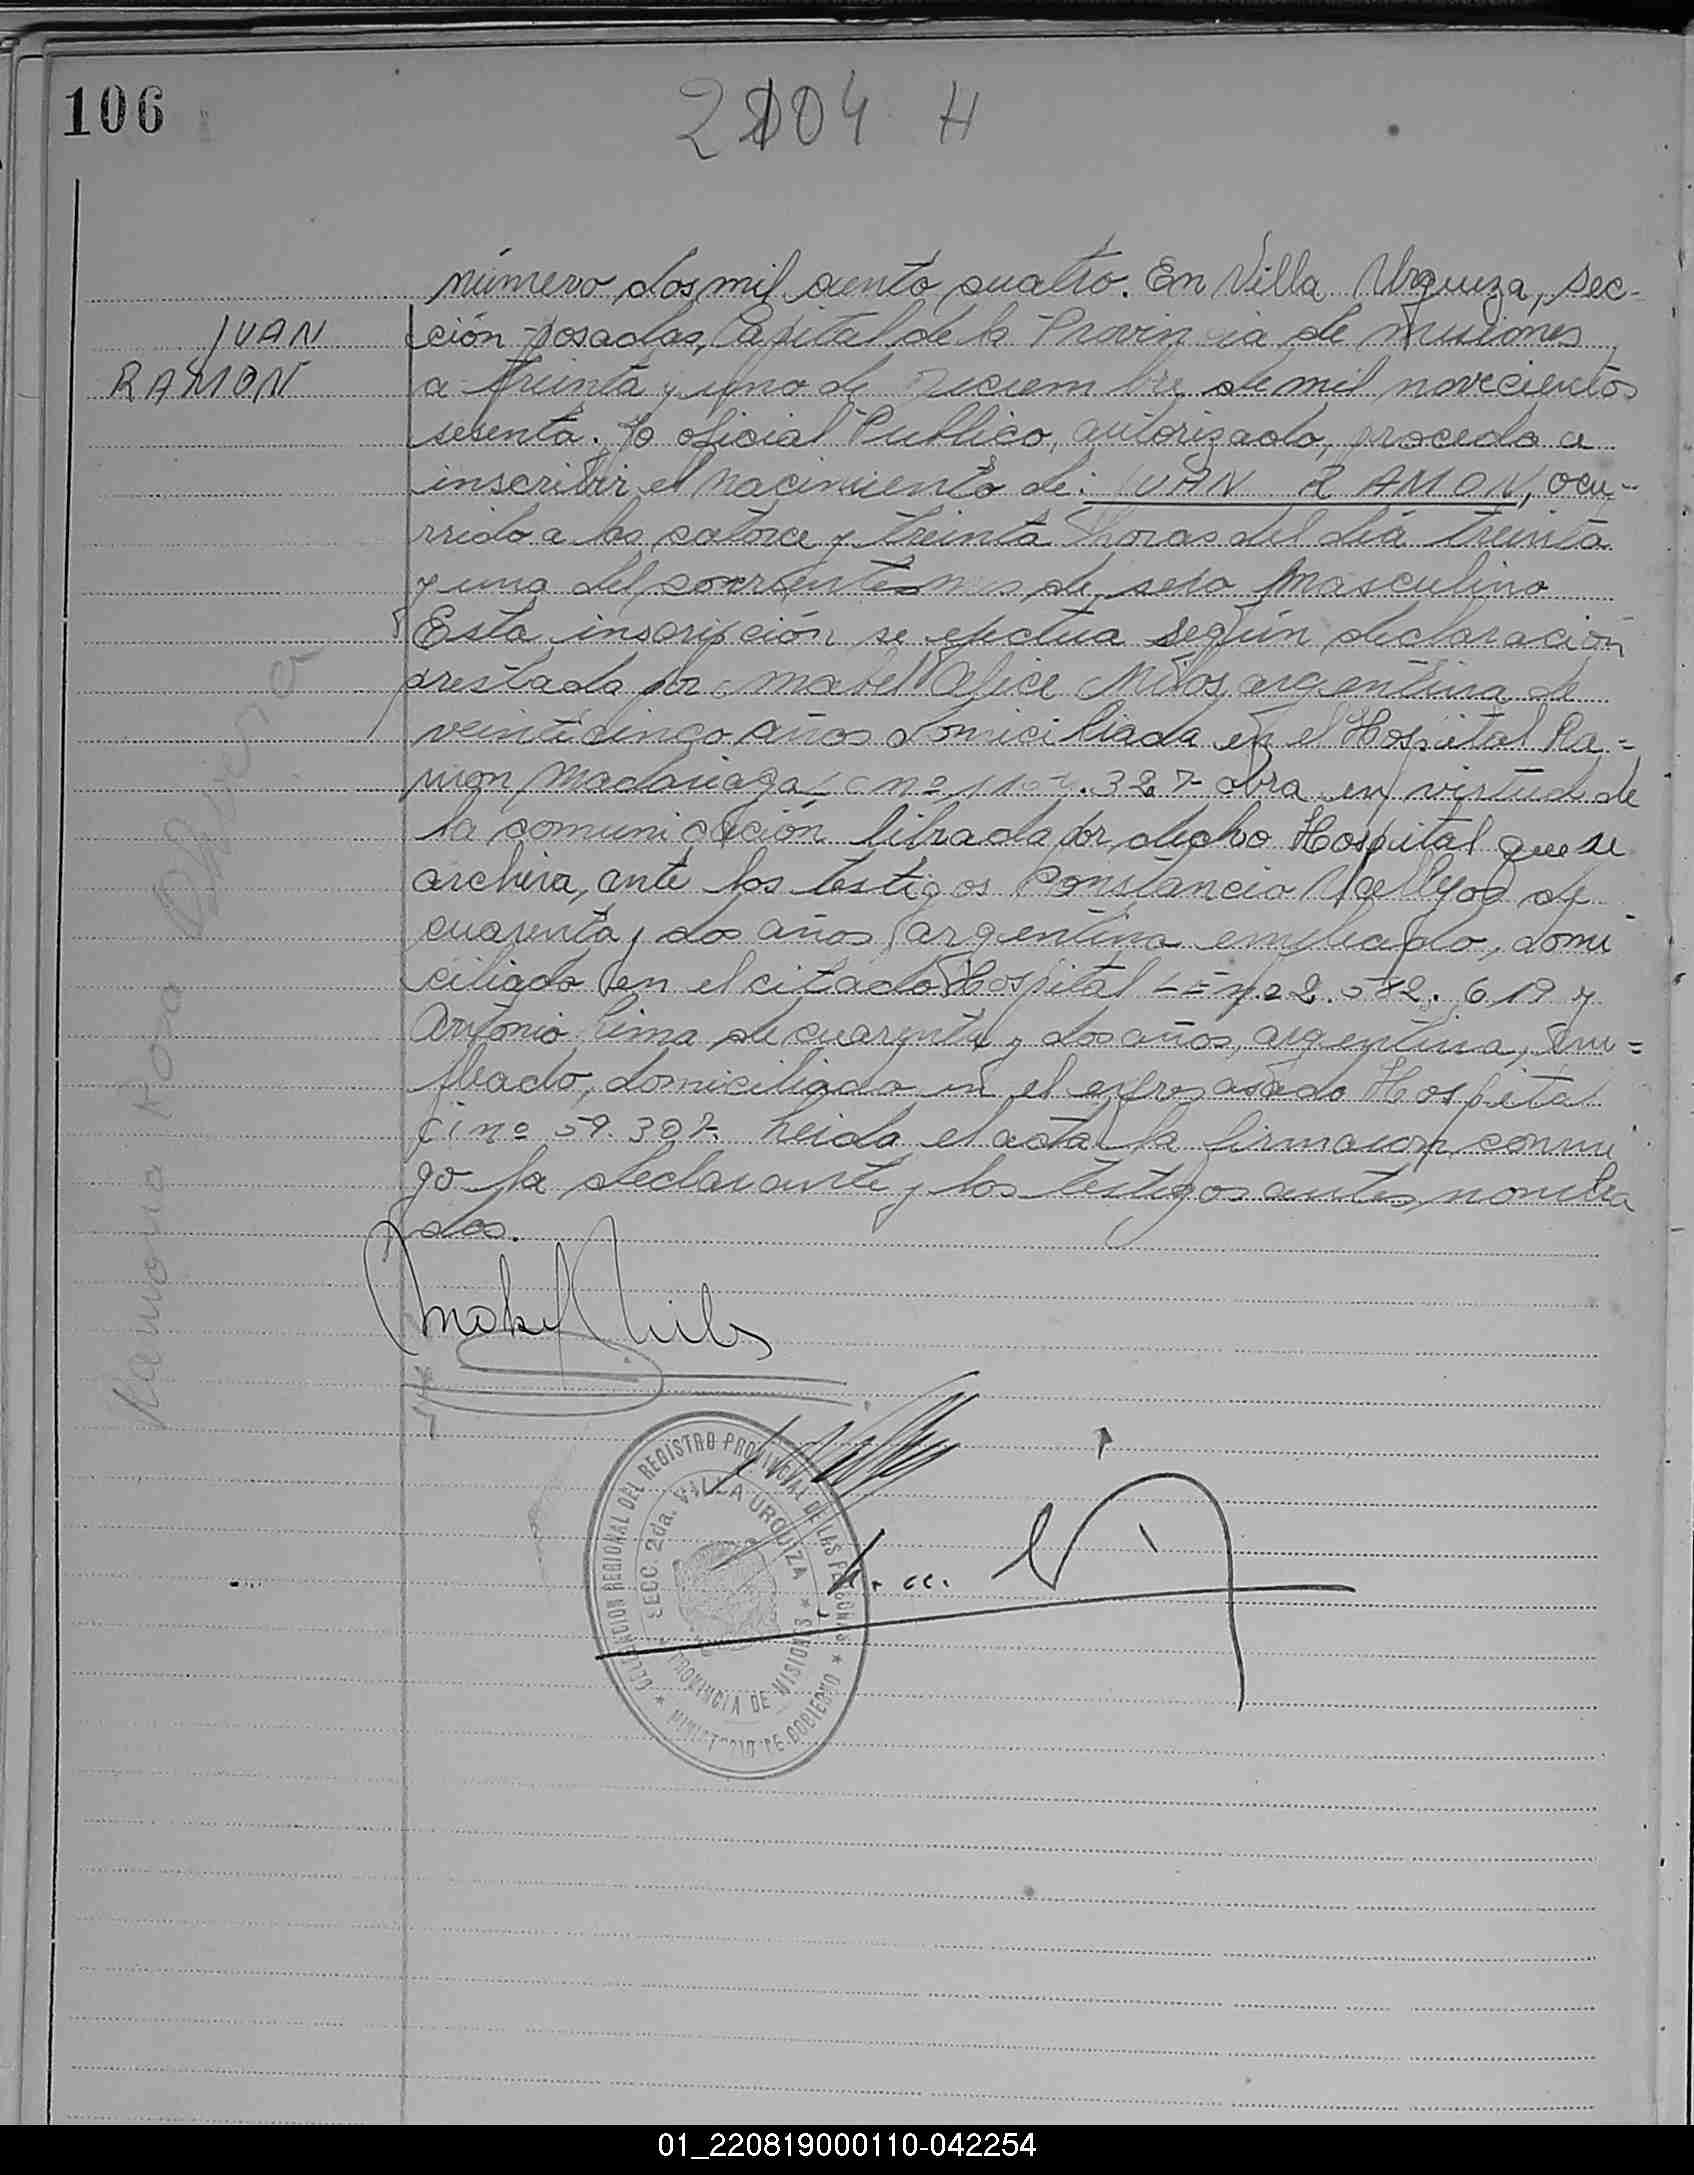 106
2104 H
número dos mil ciento cuatro. En Villa Urquiza, sec-
JUAN
RAMON
ción Posadas, Capital de la Provincia de misiones
a treinta y uno de Diciembre de mil novecientos
sesenta. Yo oficial Publico, autorizado, procedo a
inscribir el nacimiento de: JUAN RAMON, ocu-
rrido a las catorce y treinta horas del día treinta
y uno del corriente mes de sexo masculino
Esta inscripción se efectua según declaración
prestada por mabel Alice Milos, argentina de
veinticinco años domiciliada en el Hospital Ra=
mon Madariaga nº 327 obra en virtud de
la comunicación librada por dicho Hospital que se
archiva, ante los testigos Constancio de
cuarenta y dos años argentino empleado, domi
ciliado en el citado Hospital 619 y
Antonio Lima de cuarenta y dos años, argentino, em=
pleado, domiciliado en el expresado Hospital
ci nº 59.307. Leida el acta la firmaron conmi
go la declarante y los testigos antes nombra
dos.
Ramona Rosa
DELEGACION REGIONAL DEL REGISTRO PROVINCIAL DE LAS PERSONAS
SECC. 2da. VILLA URQUIZA
PROVINCIA DE MISIONES
MINISTERIO DE GOBIERNO
01_220819000110-042254